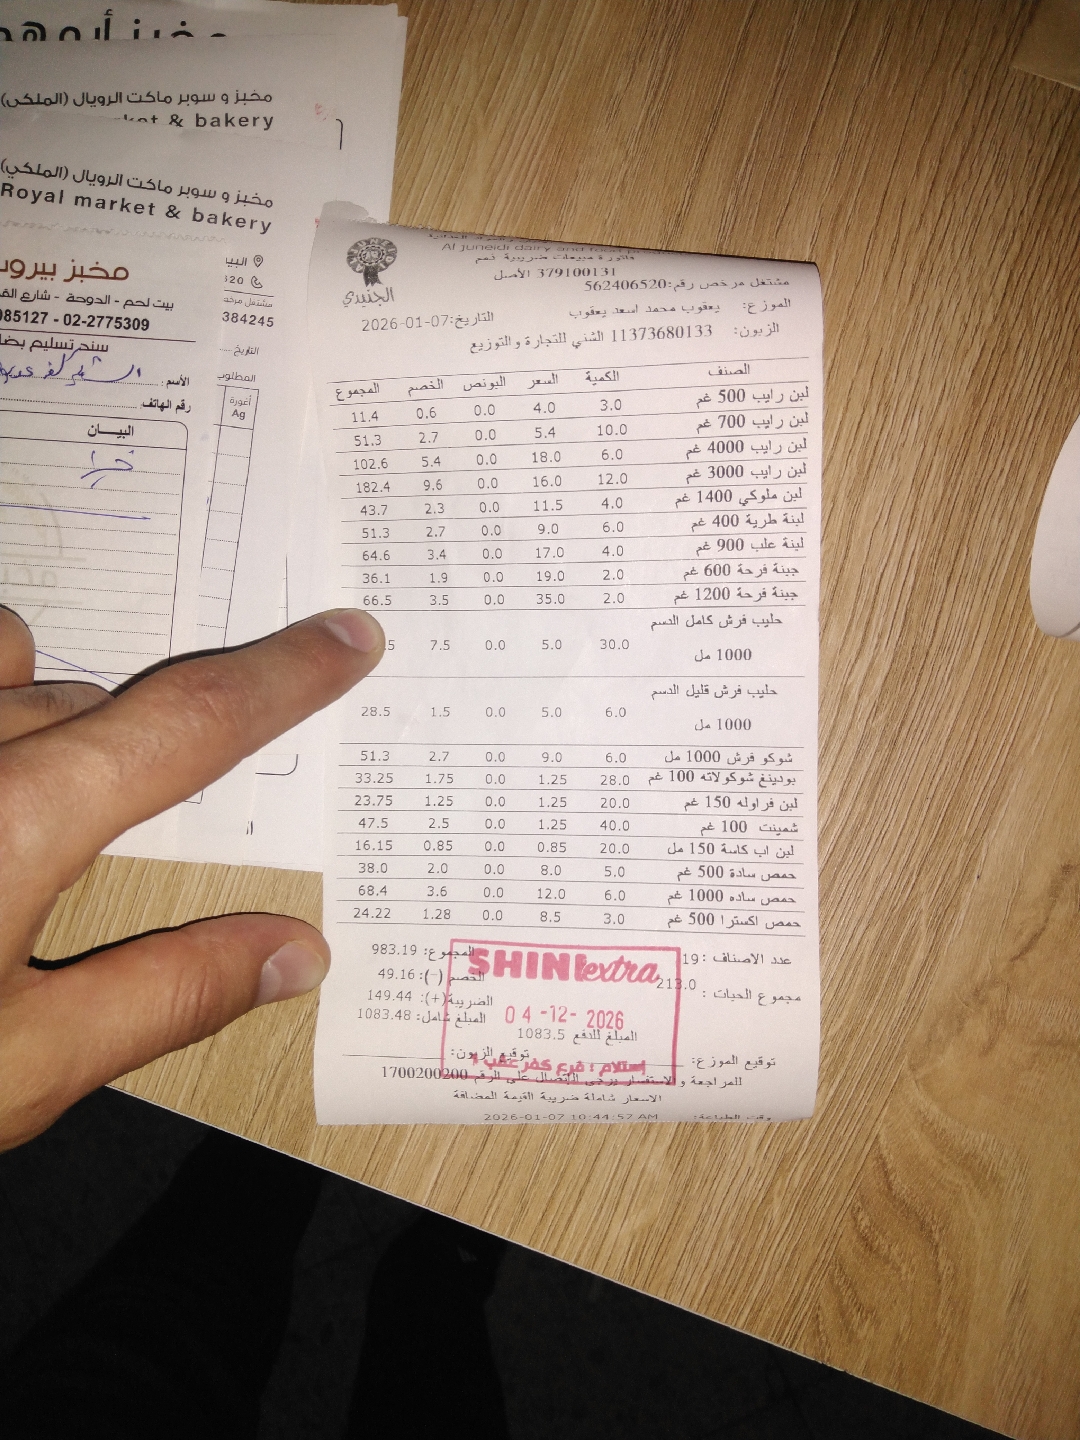 مخبز و سوبر ماكت الرويال (الملكي)
market & bakery
مخبز و سوبر ماكت الرويال (الملكي)
Royal market & bakery
مخبز بيروت
بيت لحم - الدوحة - شارع
085127 - 02-2775309
سند تسليم
الأسم:
رقم الهاتف:
البيـــان
384245
التاريخ:
المطلوب
أغورة
Ag
الجنيدي
Al juneidi dairy and
فاتورة مبيعات ضريبية
379100131 الأصل
مشتغل مرخص رقم:562406520
الموزع: يعقوب محمد اسعد يعقوب
التاريخ:2026-01-07
الزبون: 11373680133 الشني للتجارة والتوزيع
الصنف الكمية السعر البونص الخصم المجموع
لبن رايب 500 غم 3.0 4.0 0.0 0.6 11.4
لبن رايب 700 غم 10.0 5.4 0.0 2.7 51.3
لبن رايب 4000 غم 6.0 18.0 0.0 5.4 102.6
لبن رايب 3000 غم 12.0 16.0 0.0 9.6 182.4
لبن ملوكي 1400 غم 4.0 11.5 0.0 2.3 43.7
لبنة طرية 400 غم 6.0 9.0 0.0 2.7 51.3
لبنة علب 900 غم 4.0 17.0 0.0 3.4 64.6
جبنة فرحة 600 غم 2.0 19.0 0.0 1.9 36.1
جبنة فرحة 1200 غم 2.0 35.0 0.0 3.5 66.5
حليب فرش كامل الدسم
1000 مل 30.0 5.0 0.0 7.5
حليب فرش قليل الدسم
1000 مل 6.0 5.0 0.0 1.5 28.5
شوكو فرش 1000 مل 6.0 9.0 0.0 2.7 51.3
بودينغ شوكولاته 100 غم 28.0 1.25 0.0 1.75 33.25
لبن فراوله 150 غم 20.0 1.25 0.0 1.25 23.75
شمينت 100 غم 40.0 1.25 0.0 2.5 47.5
لبن اب كاسة 150 مل 20.0 0.85 0.0 0.85 16.15
حمص سادة 500 غم 5.0 8.0 0.0 2.0 38.0
حمص ساده 1000 غم 6.0 12.0 0.0 3.6 68.4
حمص اكسترا 500 غم 3.0 8.5 0.0 1.28 24.22
عدد الاصناف :19
المجموع: 983.19
مجموع الحبات : 213.0
الخصم (-): 49.16
الضريبة(+): 149.44
المبلغ شامل: 1083.48
المبلغ للدفع 1083.5
SHINI extra
04-12-2026
إستلام : فرع كفر عقب 1
توقيع الموزع:
توقيع الزبون:
للمراجعة والاستفسار يرجى الاتصال على الرقم 1700200200
الاسعار شاملة ضريبة القيمة المضافة
وقت الطباعة: 2026-01-07 10:44:57 AM